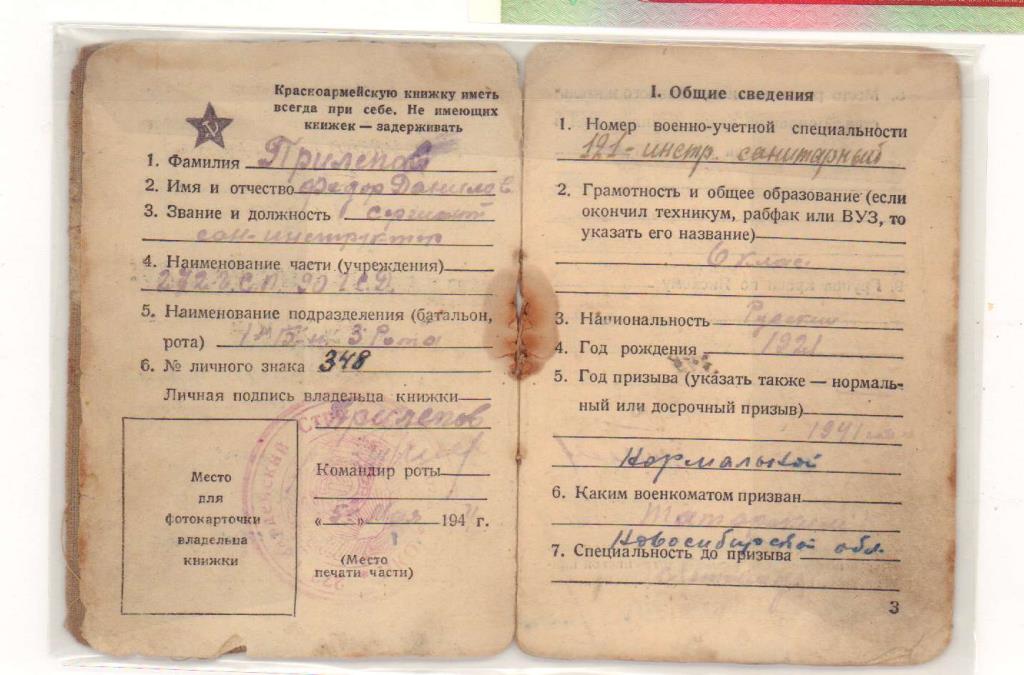 Красноармейскую книжку иметь
всегда при себе. Не имеющих
книжек — задерживать
1. Фамилия Прилепов
2. Имя и отчество Федор Данилов
3. Звание и должность сержант
сан-инструктор
4. Наименование части (учреждения)
272 г.с.п. 90 г.с.д.
5. Наименование подразделения (батальон,
рота) 1й б-н 3 Рота
6. № личного знака 348
Личная подпись владельца книжки
Прилепов
Место
для
фотокарточки
владельца
книжки
Командир роты
« 5 » Мая 194 г.
(Место
печати части)
I. Общие сведения
1. Номер военно-учетной специальности
121-инстр. санитарный
2. Грамотность и общее образование (если
окончил техникум, рабфак или ВУЗ, то
указать его название)
6 клас.
3. Национальность Русский
4. Год рождения 1921
5. Год призыва (указать также — нормаль-
ный или досрочный призыв)
1941
Нормальной
6. Каким военкоматом призван
Новосибирской обл.
7. Специальность до призыва
3